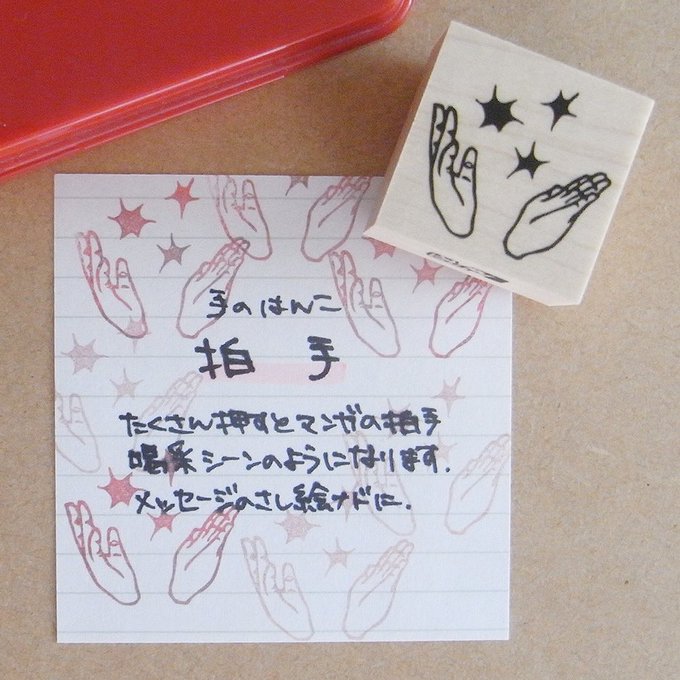 手のはんこ
拍手
たくさん押すとマンガの拍手
喝采シーンのようになります.
メッセージのさし絵ナドに.